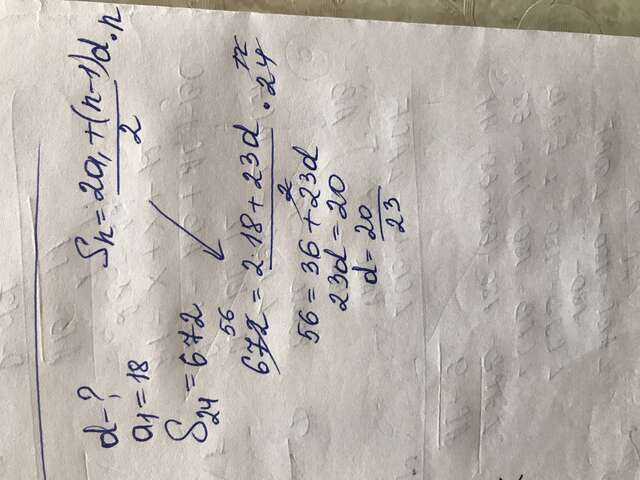 d-?
a₁=18
S₂₄=672
Sₙ=2a₁+(n-1)d/2·n
672 56=2·18+23d/2·24 12
56=36+23d
23d=20
d=20/23